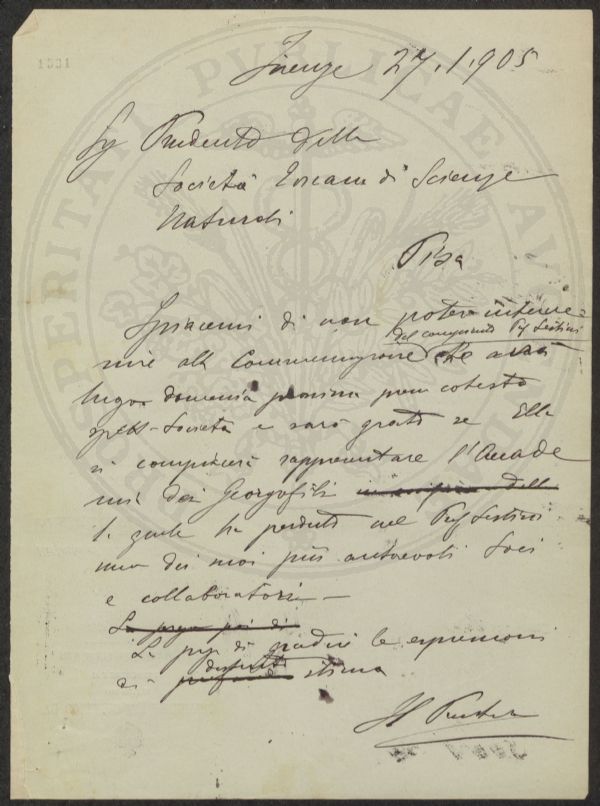 1331
Firenze 27.1.905
Sig Presidente della
Società Toscana di Scienze
Naturali
Pisa
Spiacemi di non poter interve=
del compianto Prof Sestini
nire alla Commemorazione che avrà
luogo domenica prossima presso cotesta
spett. Società e sarò grato se Ella
si compiacerà rappresentare l'Accade
mia dei Georgofili della
la quale ha perduto nel Prof Sestini
uno dei suoi più autorevoli Soci
e collaboratori —
La prego poi di
La prego di gradire le espressioni
di distinta stima
Il Presidente